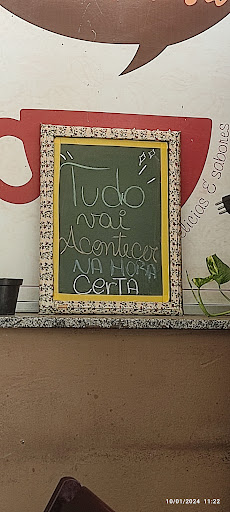 Tudo
vai
Acontecer
NA HORA
CertA
lícias & sabores
10/01/2024 11:22